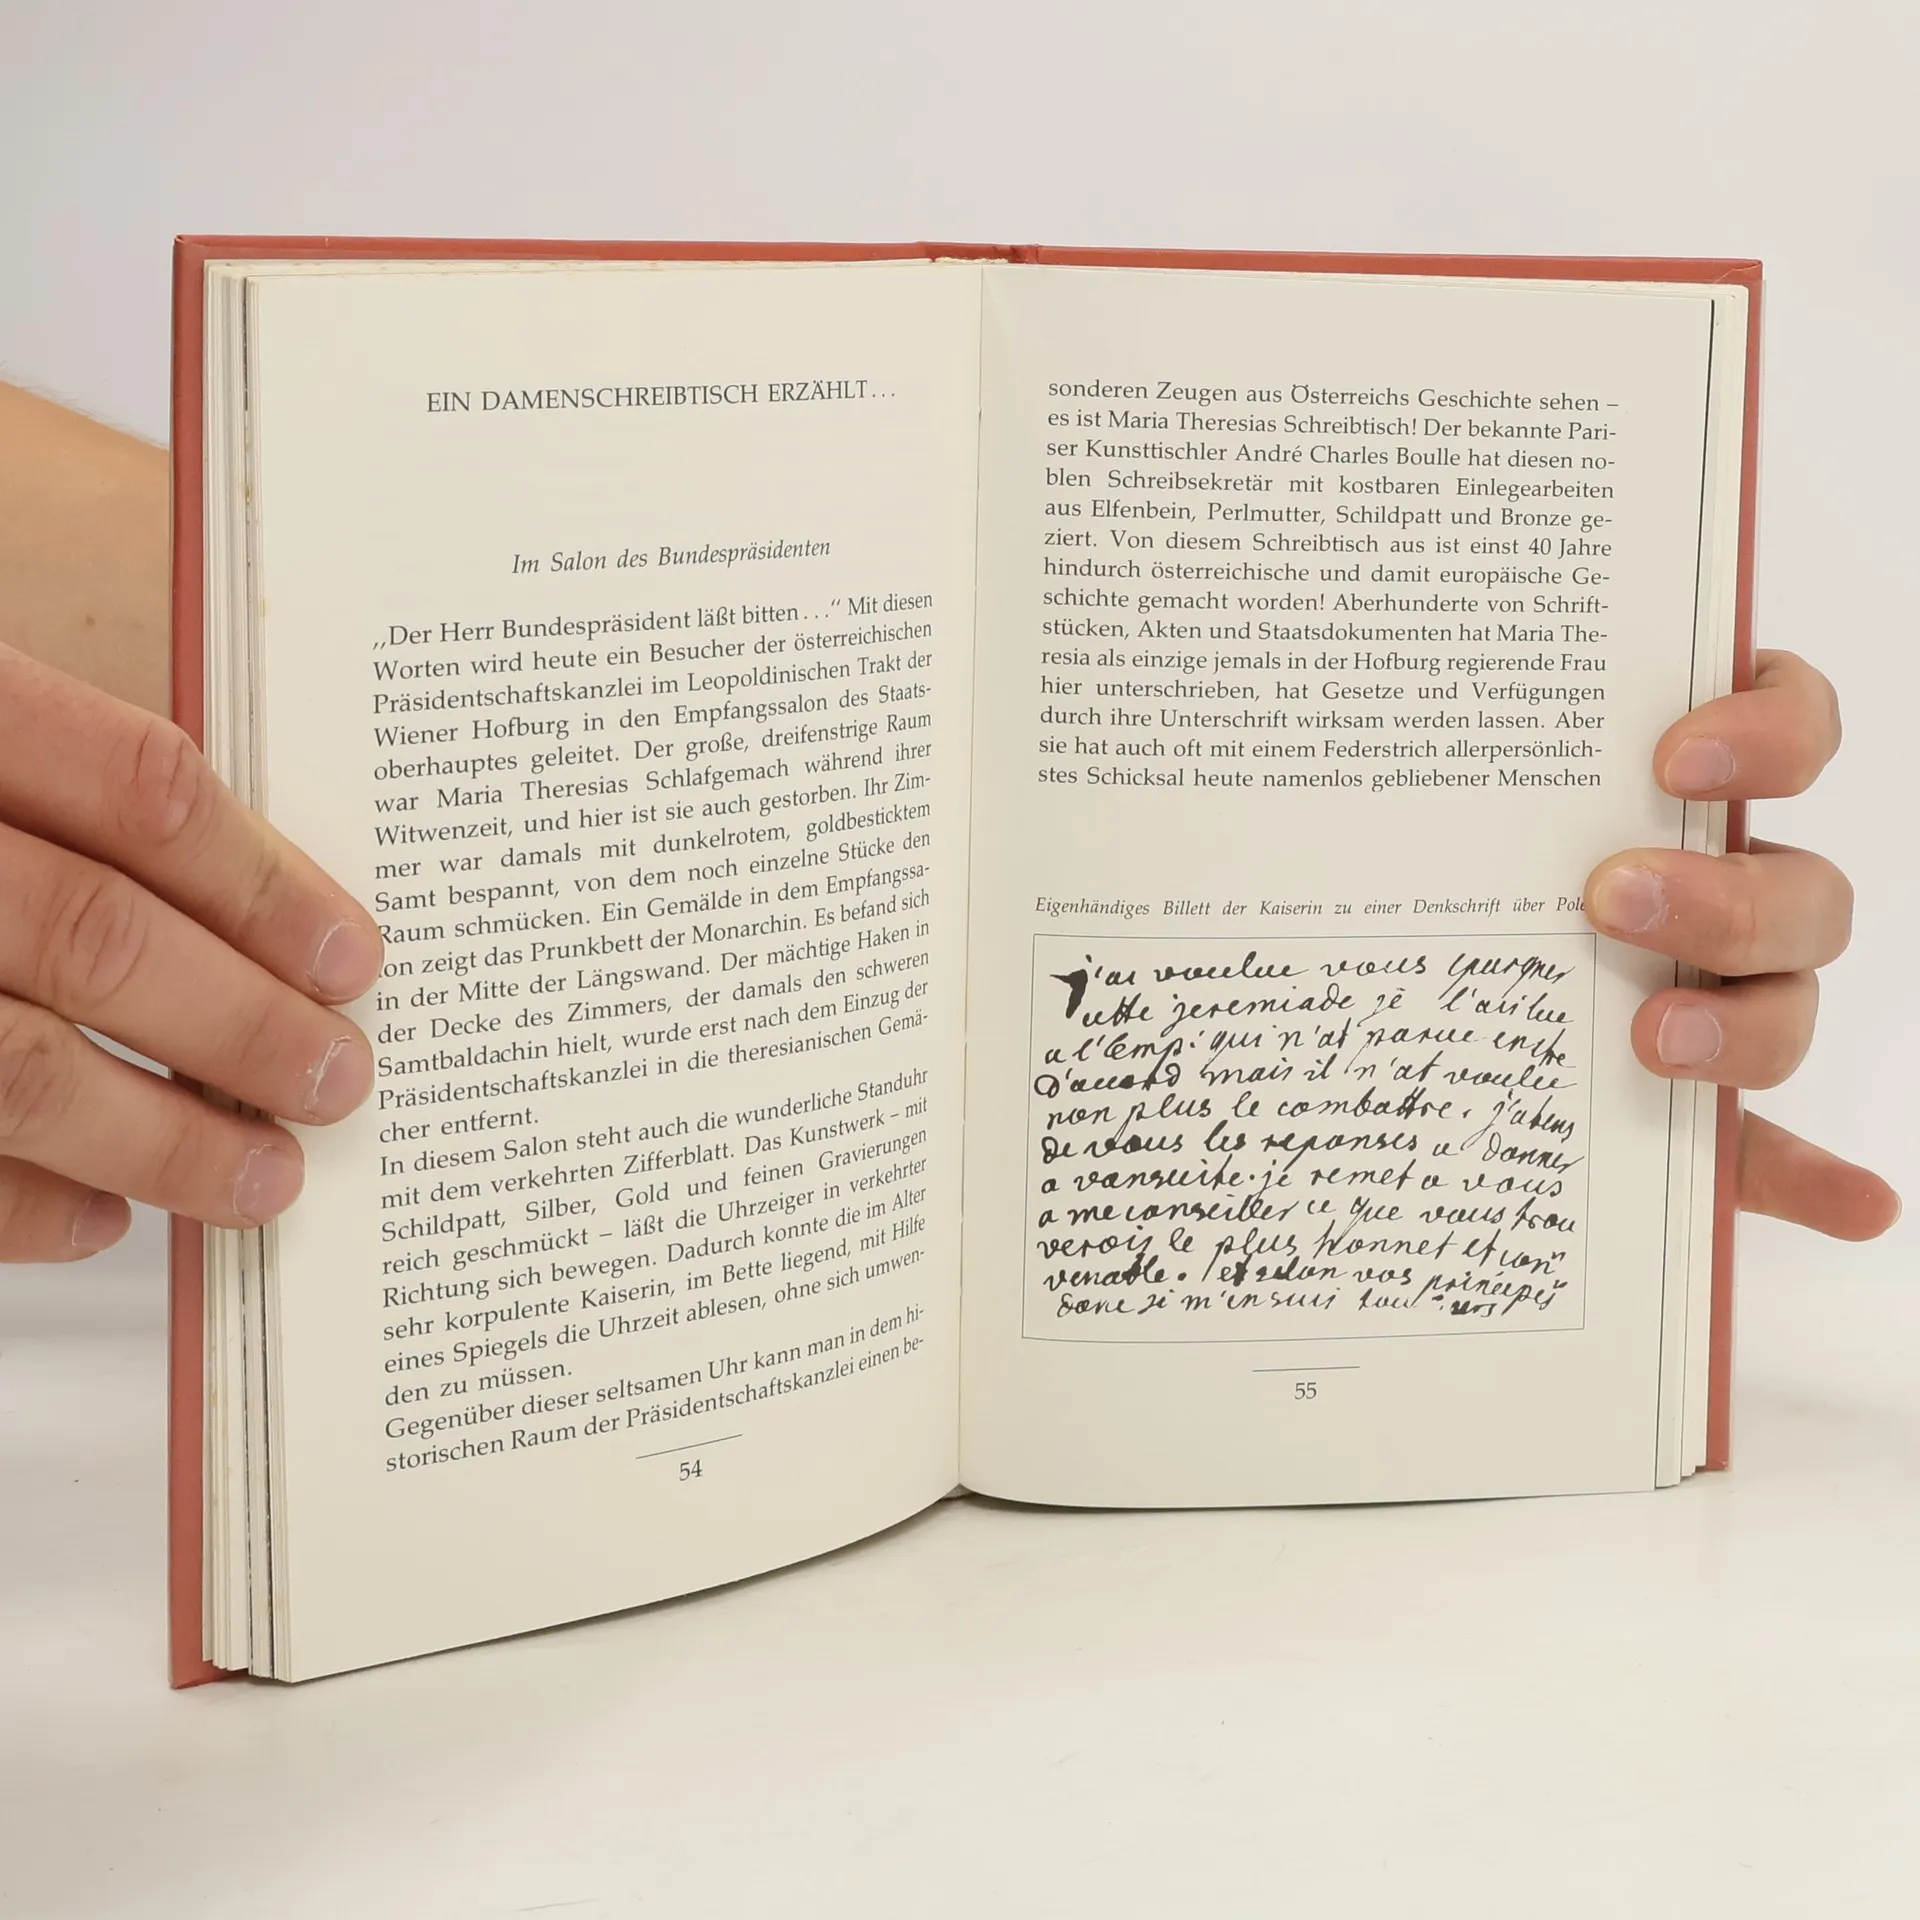 EIN DAMENSCHREIBTISCH ERZÄHLT...
Im Salon des Bundespräsidenten
„Der Herr Bundespräsident läßt bitten...“ Mit diesen
Worten wird heute ein Besucher der österreichischen
Präsidentschaftskanzlei im Leopoldinischen Trakt der
Wiener Hofburg in den Empfangssalon des Staats-
oberhauptes geleitet. Der große, dreifenstrige Raum
war Maria Theresias Schlafgemach während ihrer
Witwenzeit, und hier ist sie auch gestorben. Ihr Zim-
mer war damals mit dunkelrotem, goldbesticktem
Samt bespannt, von dem noch einzelne Stücke den
Raum schmücken. Ein Gemälde in dem Empfangssa-
lon zeigt das Prunkbett der Monarchin. Es befand sich
in der Mitte der Längswand. Der mächtige Haken in
der Decke des Zimmers, der damals den schweren
Samtbaldachin hielt, wurde erst nach dem Einzug der
Präsidentschaftskanzlei in die theresianischen Gemä-
cher entfernt.
In diesem Salon steht auch die wunderliche Standuhr
mit dem verkehrten Zifferblatt. Das Kunstwerk – mit
Schildpatt, Silber, Gold und feinen Gravierungen
reich geschmückt – läßt die Uhrzeiger in verkehrter
Richtung sich bewegen. Dadurch konnte die im Alter
sehr korpulente Kaiserin, im Bette liegend, mit Hilfe
eines Spiegels die Uhrzeit ablesen, ohne sich umwen-
den zu müssen.
Gegenüber dieser seltsamen Uhr kann man in dem hi-
storischen Raum der Präsidentschaftskanzlei einen be-
54
sonderen Zeugen aus Österreichs Geschichte sehen –
es ist Maria Theresias Schreibtisch! Der bekannte Pari-
ser Kunsttischler André Charles Boulle hat diesen no-
blen Schreibsekretär mit kostbaren Einlegearbeiten
aus Elfenbein, Perlmutter, Schildpatt und Bronze ge-
ziert. Von diesem Schreibtisch aus ist einst 40 Jahre
hindurch österreichische und damit europäische Ge-
schichte gemacht worden! Aberhunderte von Schrift-
stücken, Akten und Staatsdokumenten hat Maria The-
resia als einzige jemals in der Hofburg regierende Frau
hier unterschrieben, hat Gesetze und Verfügungen
durch ihre Unterschrift wirksam werden lassen. Aber
sie hat auch oft mit einem Federstrich allerpersönlich-
stes Schicksal heute namenlos gebliebener Menschen
Eigenhändiges Billett der Kaiserin zu einer Denkschrift über
j'ai voulue vous epargner
cette jeremiade je l'ai lue
a l'Emp: qui n'at parue entre
d'accord mais il n'at voulu
non plus le combattre. j'attens
de vous les reponses a donner
a vansuite. je remet a vous
a me conseiller ce que vous trou
verois le plus honnet et con
venable. et selon vos principes
dont je m'en suis
55